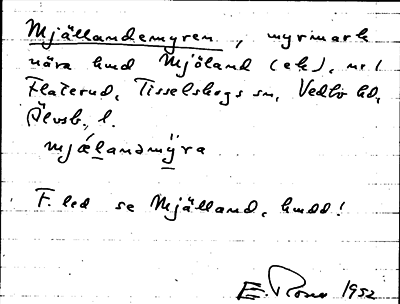 Mjällandemyren, myrmark
nära hmd Mjöland (ek), nr 1
Flaterud, Tisselskogs sn, Vedbo hd,
Älvsb. l.
mjálanəmÿra
F. led se Mjälland, hmdd!
E. 1952